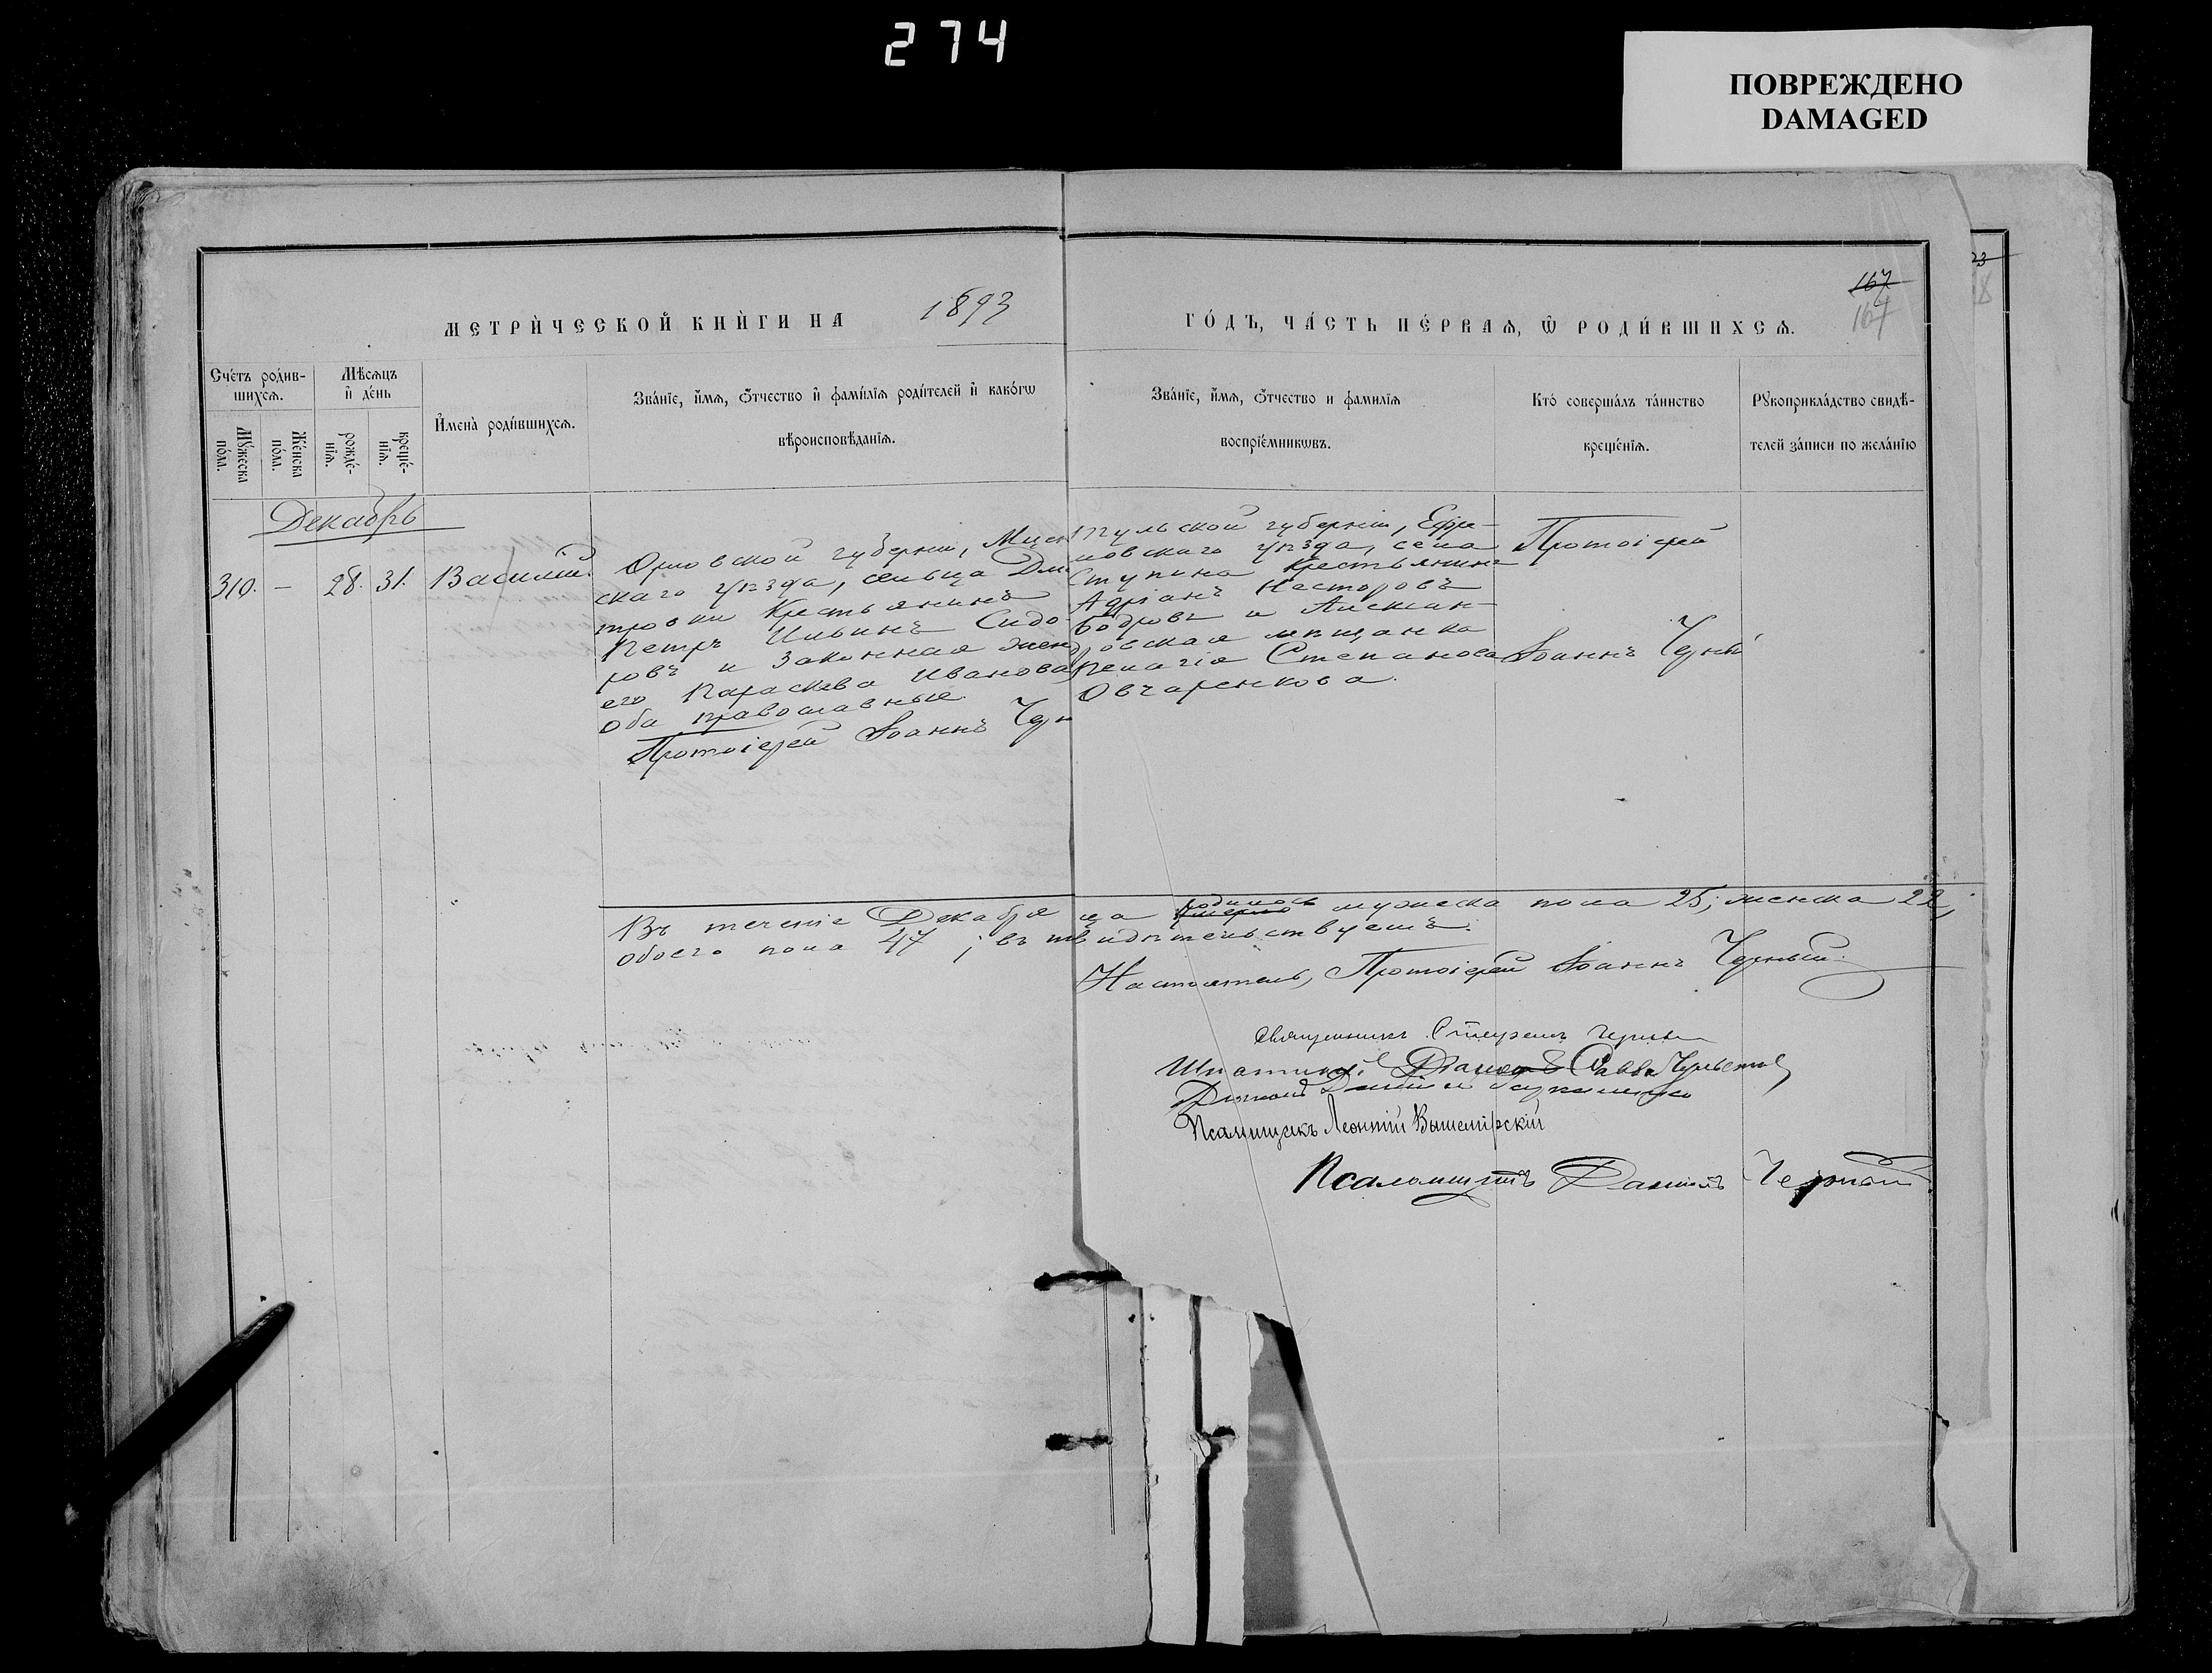 274
ПОВРЕЖДЕНО
DAMAGED
23
167
167
МЕТРИ́ЧЕСКОЙ КНИ́ГИ НА 1893 ГО́ДЪ, ЧА́СТЬ ПЕ́РВАѦ, Ѽ РОДИ́ВШИХСѦ.
Сче́тъ роди́в-
шихсѧ.
Мꙋ́жеска по́ла.
Же́нска по́ла.
Мѣ́сѧцъ
и҆ де́нь
рожде́-
нїѧ.
креще́-
нїѧ.
И҆мена̀ роди́вшихсѧ.
Зва́нїе, и҆́мѧ, ѻ҆́тчество и҆ фами́лїѧ роди́телей и҆ како́гѡ
вѣроисповѣ́данїѧ.
Зва́нїе, и҆́мѧ, ѻ҆́тчество и фами́лїѧ
воспрїе́мникѡвъ.
Кто́ соверша́лъ та́инство
креще́нїѧ.
Рꙋкоприкла́дство свидѣ́-
телей за́писи по жела́нїю
Декабрь
310. — 28. 31. Василій.
Орловской губерніи, Мцен
скаго уѣзда, сельца Дми
тровки Крестьянинъ
Петръ Ильинъ Сидо-
ровъ и законная жена
его Параскева Иванова
оба православные
Протоіерей Іоаннъ Чер
Тульской губерніи, Ефре-
мовскаго уѣзда, села
Ступина Крестьянинъ
Адріанъ Несторовъ
Бодровъ и Алексан-
дровская мѣщанка
Пелагія Степанова
Овчаренкова.
Протоіерей
Іоаннъ Черный
Въ теченіе Декабря ца умерло родилось мужеска пола 25, женска 22,
обоего пола 47; въ свидѣтельствуемъ.
Настоятель, Протоіерей Іоаннъ Черный.
Священникъ Черный
Штатный Діаконъ Савва
Діаконъ
Псаломщикъ Леонтій Вышемірскій
Псаломщикъ Даніилъ Черный